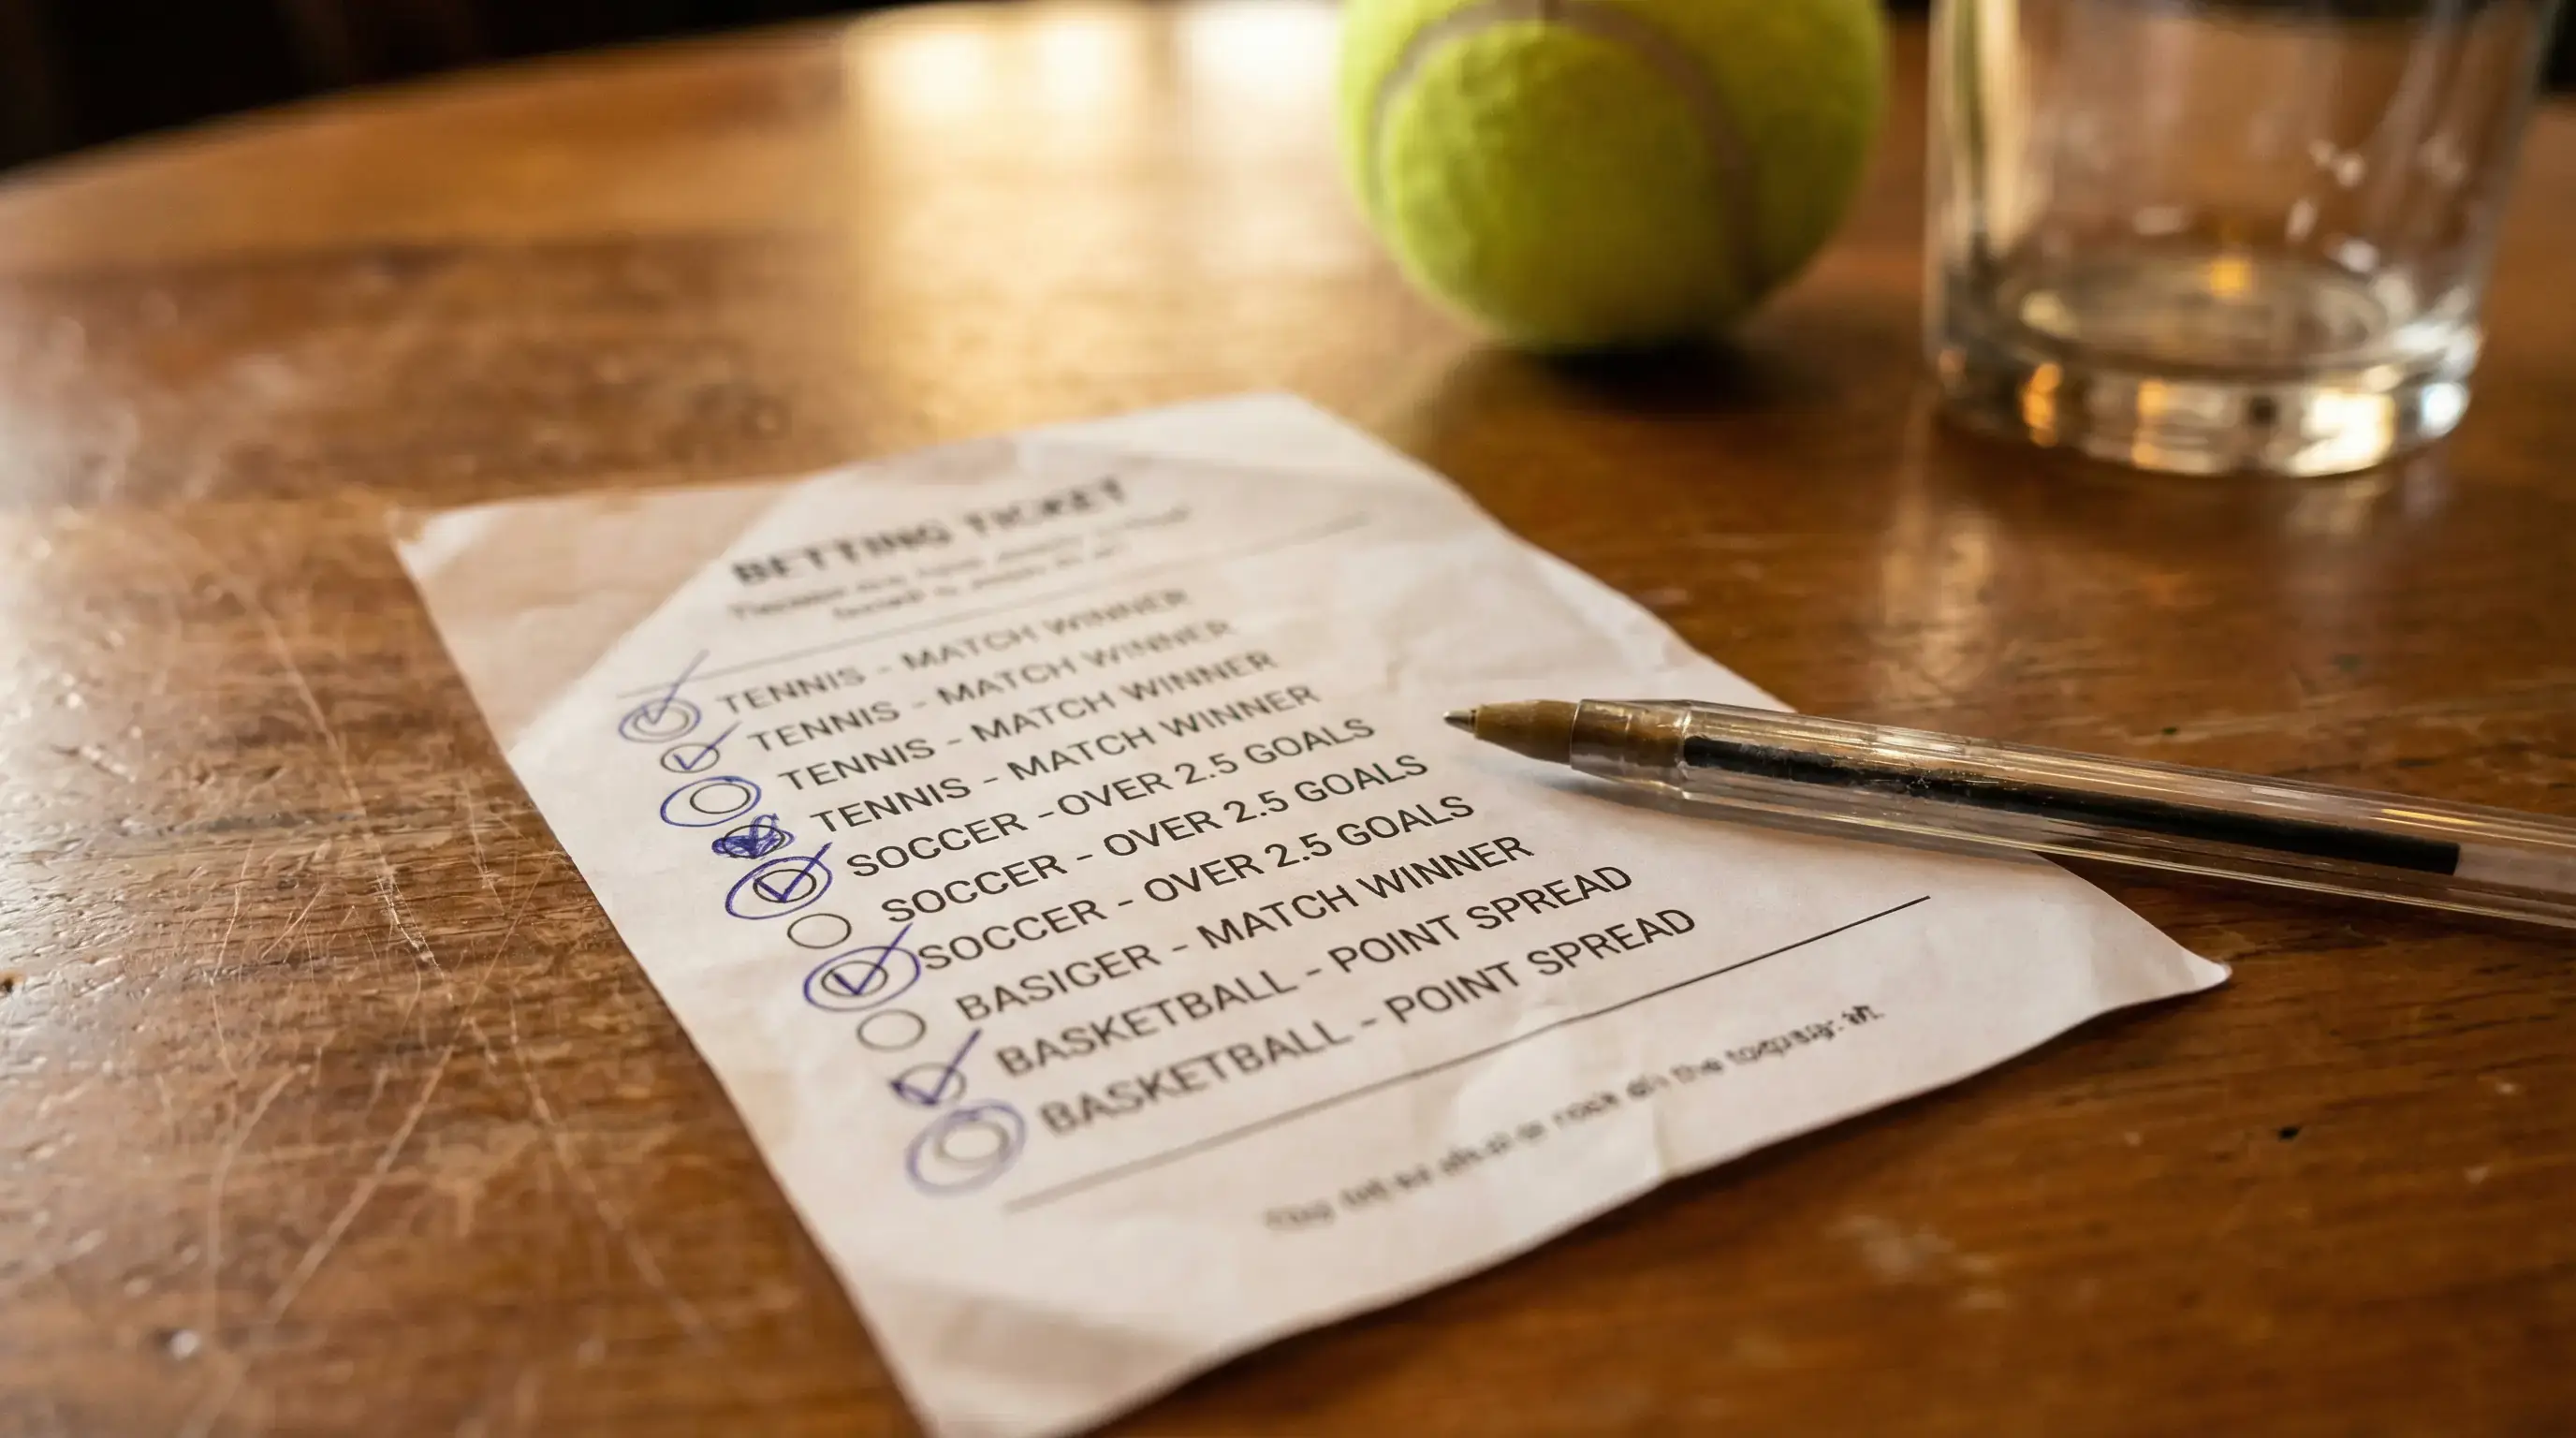 BETTING TICKET
TENNIS - MATCH WINNER
TENNIS - MATCH WINNER
TENNIS - MATCH WINNER
TENNIS - MATCH WINNER
SOCCER -OVER 2.5 GOALS
SOCCER - OVER 2.5 GOALS
SOCCER - OVER 2.5 GOALS
BASICER - MATCH WINNER
BASKETBALL - POINT SPREAD
BASKETBALL - POINT SPREAD
the